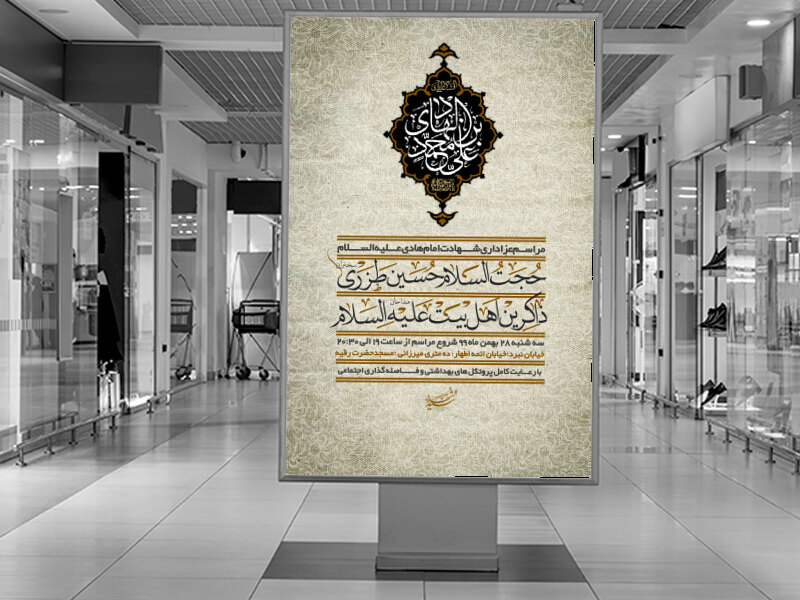 علی بن محمد الهادی
مراسم عزاداری شهادت امام هادی علیه السلام
حجت السلام حسین طزری
ذاکرین اهل بیت علیه السلام
مداحان
سه شنبه ۲۸ بهمن ماه ۹۹ شروع مراسم از ساعت ۱۹ الی ۲۰:۳۰
خیابان نبرد؛خیابان ائمه اطهار؛ ده متری میرزائی ؛مسجدحضرت رقیه
با رعایت کامل پروتکل های بهداشتی و فاصله گذاری اجتماعی